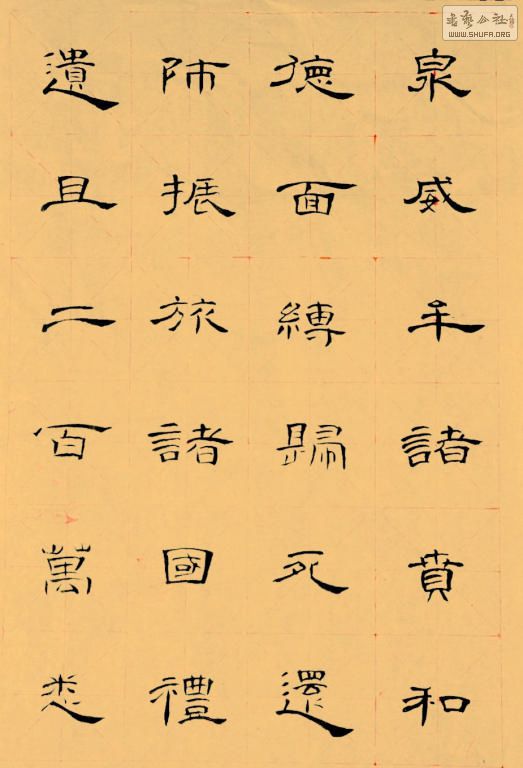 泉威牟諸賁和
德面縛歸死還
師振旅諸國禮
遺且二百萬悉
書藝公社
WWW.SHUFA.ORG